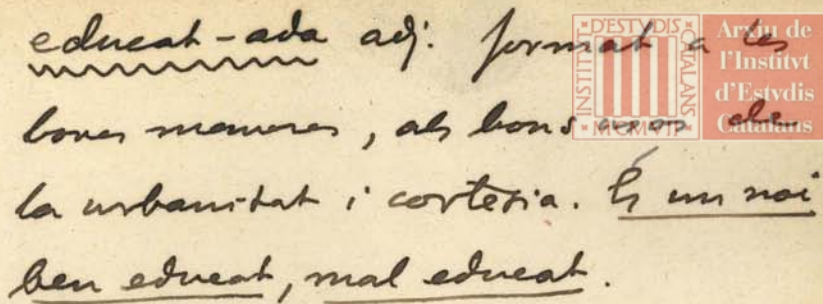 educat-ada adj. format a les
bones maneres, als bons usos de
la urbanitat i cortesia. És un noi
ben educat, mal educat.
INSTITVT D'ESTVDIS CATALANS
MCMVII
Arxiu de
l'Institvt
d'Estvdis
Catalans